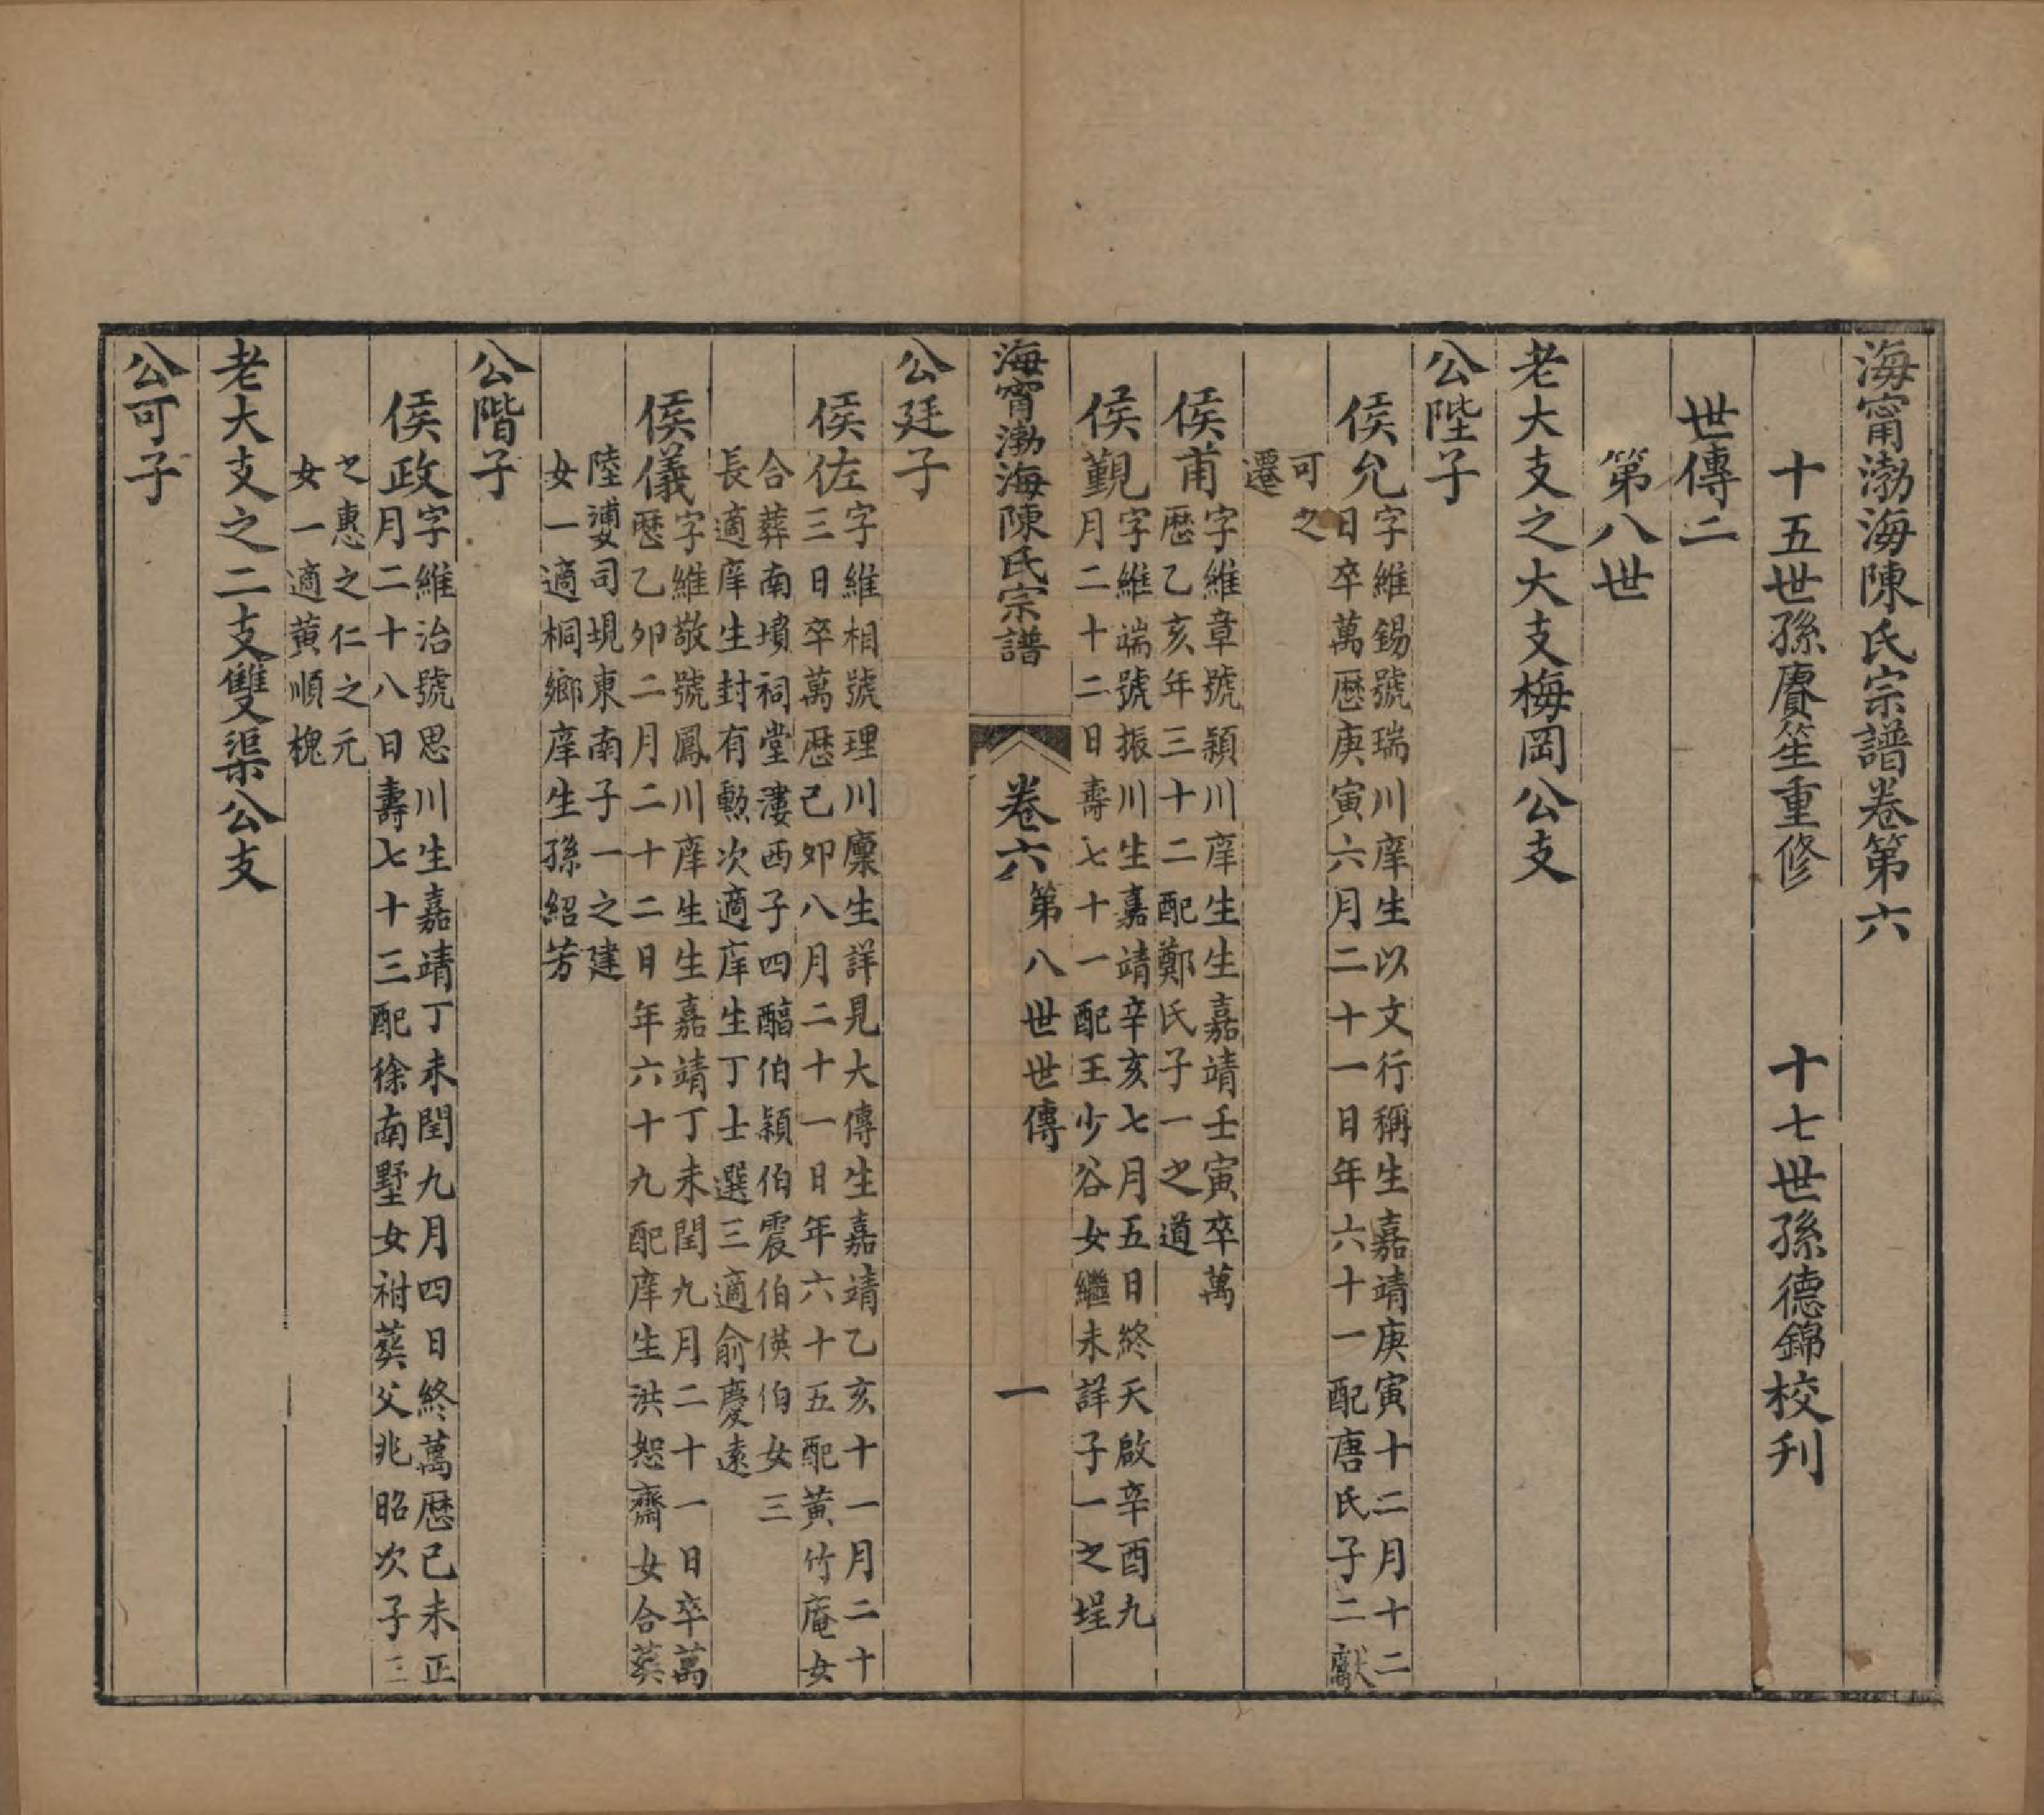 海甯渤海陳氏宗譜卷第六
十五世孫賡笙重修　十七世孫德錦校刊
世傳二
第八世
老大支之大支梅岡公支
公陛子
侯允字維錫號瑞川庠生以文行稱生嘉靖庚寅十二月十二
日卒萬歷庚寅六月二十一日年六十一配唐氏子二獻
可之
遷
侯甫字維章號穎川庠生生嘉靖壬寅卒萬
歷乙亥年三十二配鄭氏子一之道
侯覲字維端號振川生嘉靖辛亥七月五日終天啟辛酉九
月二十二日壽七十一配王少谷女繼未詳子一之埕
海甯渤海陳氏宗譜
卷六
第八世世傳
一
公廷子
侯佐字維相號理川廩生詳見大傳生嘉靖乙亥十一月二十
三日卒萬歷己卯八月二十一日年六十五配黃竹庵女
合葬南墳祠堂漊西子四醕伯穎伯震伯偀伯女三
長適庠生封有勲次適庠生丁士選三適俞慶遠
侯儀字維敬號鳳川庠生生嘉靖丁未閏九月二十一日卒萬
歷乙卯二月二十二日年六十九配庠生洪恕齋女合葬
陸漊司垷東南子一之建
女一適桐鄉庠生孫紹芳
公階子
侯政字維治號思川生嘉靖丁未閏九月四日終萬歷己未正
月二十八日壽七十三配徐南墅女祔葬父兆昭次子三
之惠之仁之元
女一適黃順槐
老大支之二支雙渠公支
公可子